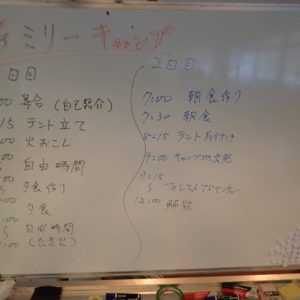 ミリーキャンプ
日目
:00 集合 (自己紹介)
:15 テント立て
:00 火おこし
:00 自由時間
夕食作り
:00 夕食
自由時間
:00 (たき火)
2日目
7:00 朝食作り
7:30 朝食
8:15 テント片付け
9:00 キャンプ地出発
9:15
12:00 解散